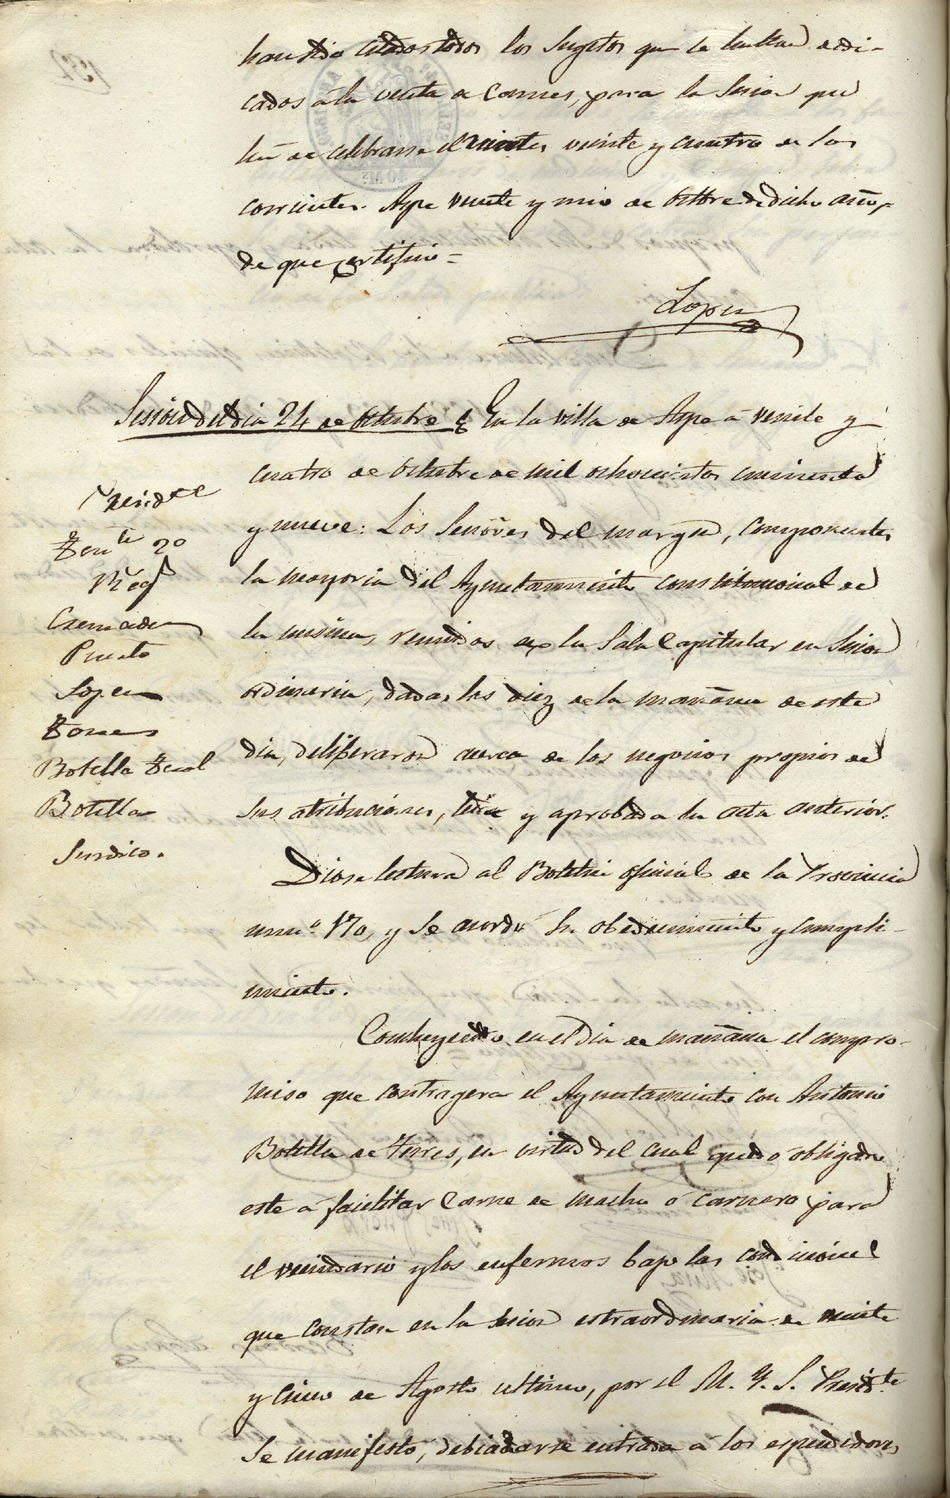 han sido citados todos los sugetos que se hallan dedi-
cados á la venta de carnes, para la sesion que
ha de celebrarse el veinte y cuatro de los
corrientes. Aspe veinte y uno de Octbre de dicho año,
de que certifico =
Lopez
Sesion del dia 24 de Octubre En la villa de Aspe á veinte y
cuatro de Octubre de mil ochocientos cincuenta
y nueve: Los Señores del margen, componentes
la mayoria del Ayuntamiento constitucional de
la misma, reunidos en la Sala Capitular en Sesion
ordinaria, dadas las diez de la mañana de este
dia, deliberaron acerca de los negocios propios de
sus atribuciones, leida y aprobada la acta anterior.
Presidte
Tente 2º
Reg
Cremades
Puerto
Lopez
Torres
Botella Teral
Botella
Sindico.
Diose lectura al Boletin oficial de la Provincia
num.º 170, y se acordó su obedecimiento y cumpli-
miento.
Concluyendo en el dia de mañana el compro-
miso que contragera el Ayuntamiento con Antonio
Botella de Torres, en virtud del cual quedo obligado
este á facilitar carne de macho o carnero para
el vecindario y los enfermos bajo las condiciones
que constan en la sesion estraordinaria de veinte
y cinco de Agosto ultimo, por el M. Y. S. Presidte
se manifestó, debia darse entrada á los espendedores